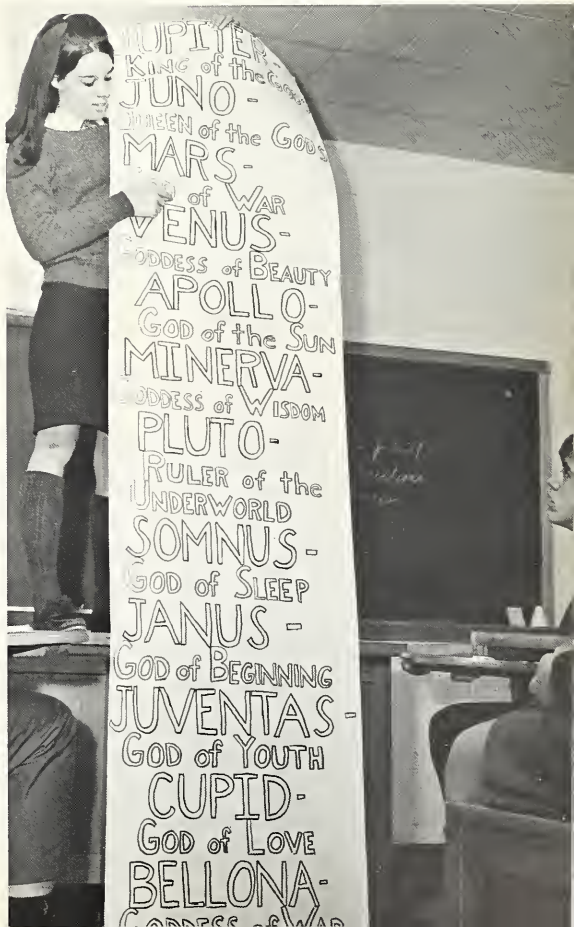 JUPIYER-
KING of the Gods
JUNO-
QUEEN of the GODS
MARS-
of WAR
VENUS-
GODDESS of BEAUTY
APOLLO-
GOD of the SUN
MINERVA-
GODDESS of WISDOM
PLUTO-
RULER of the
UNDERWORLD
SOMNUS-
GOD of SLEEP
JANUS-
GOD of BEGINNING
JUVENTAS-
GOD of YOUTH
CUPID-
GOD of LOVE
BELLONA-
GODDESS of WAR